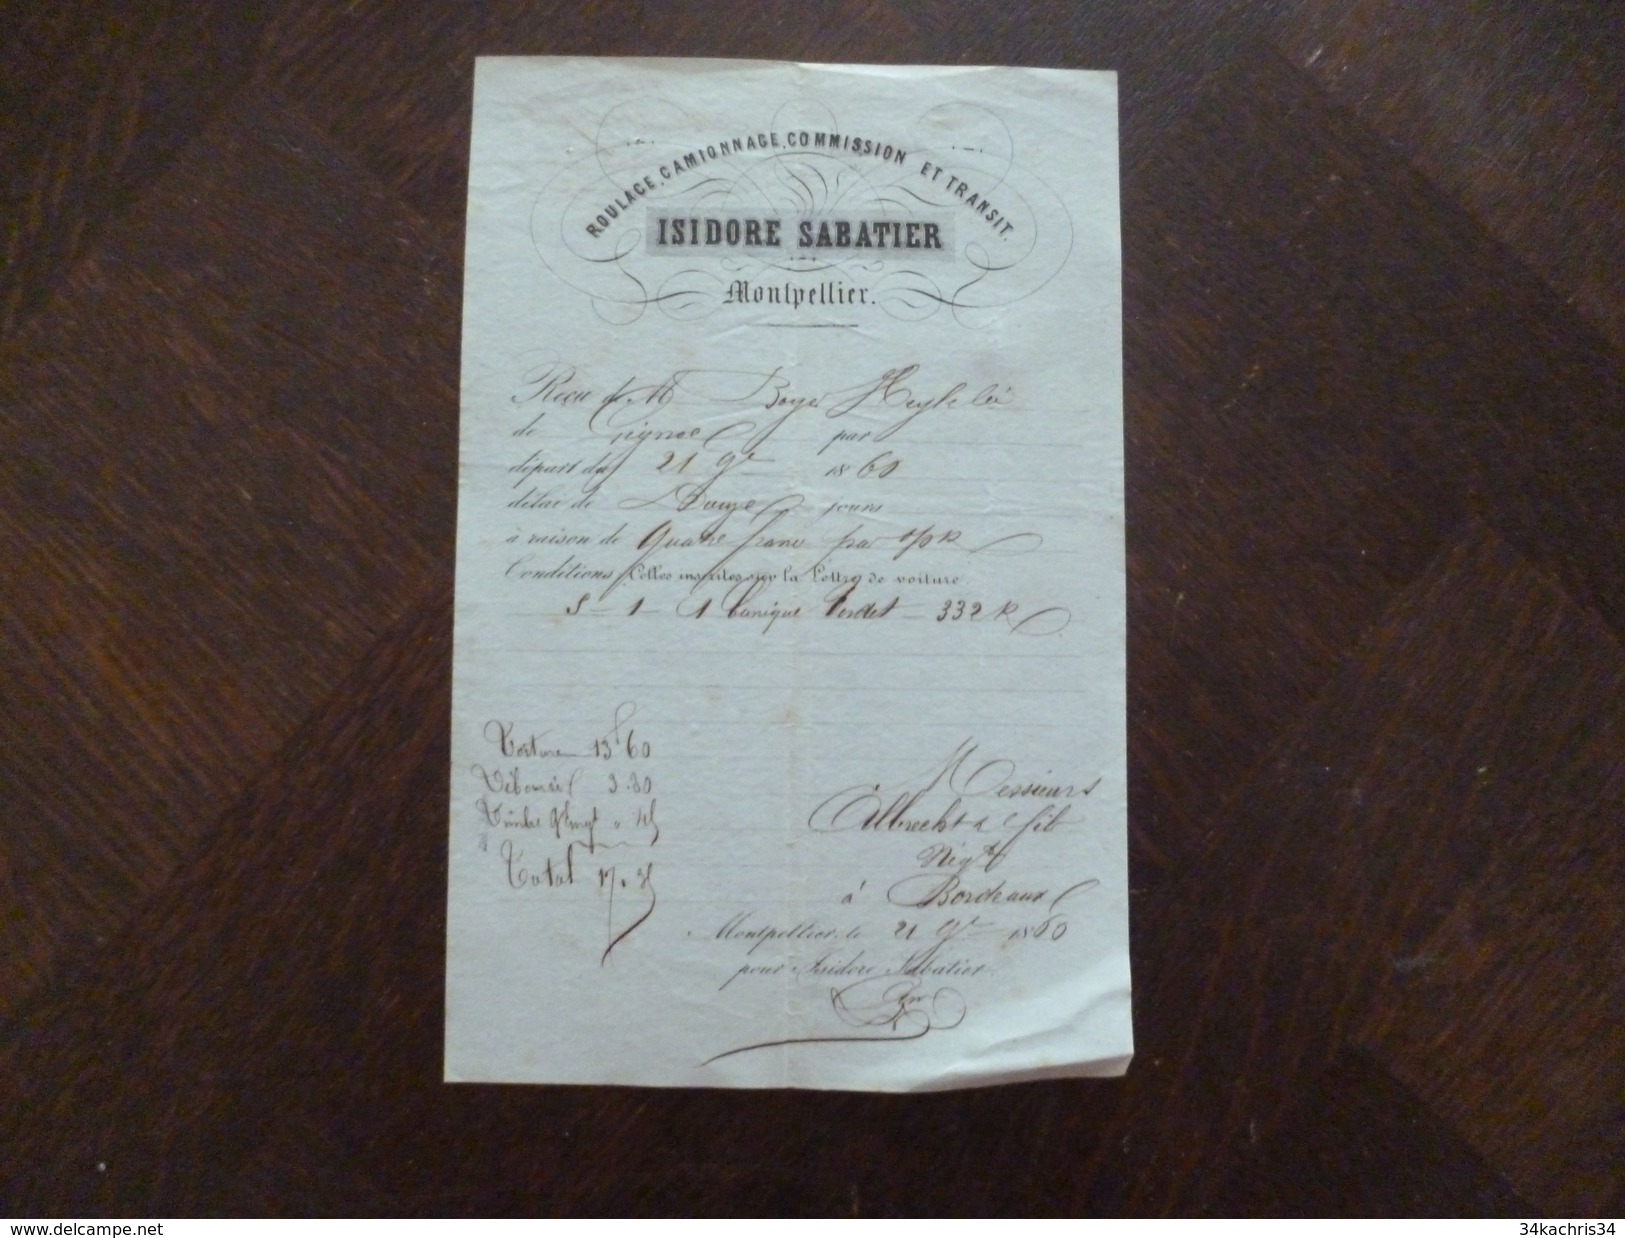 ROULAGE, CAMIONNAGE, COMMISSION ET TRANSIT.
ISIDORE SABATIER
Montpellier.
Reçu d M Boyer
de Gignac par
départ du 21 9bre 1860
délai de Douze jours
à raison de Quatre francs par o/o K
Conditions Celles inscrites sur la Lettre de voiture.
S - 1 - 1 barrique Verdet - 332 K
Voiture 13f 60
Débours 3.30
Timbre 45
Total 17.35
Messieurs
Albrecht & fils
Négts
à Bordeaux
Montpellier, le 21 9bre 1860
pour Isidore Sabatier.
www.delcampe.net
34kachris34